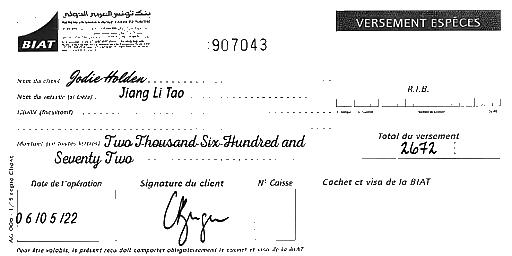 بنك تونس العربي الدولي
BIAT
:907043
VERSEMENT ESPÈCES
Nom du client Jodie Holden
Nom du remettant (si tiers) Jiang Li Tao
R.I.B.
Libellé (facultatif)
Montant (en toutes lettres) Two Thousand Six Hundred and
Seventy Two
Total du versement
2672
Date de l'opération Signature du client N° Caisse Cachet et visa de la BIAT
06/05/22
Pour être valable, le présent reçu doit comporter obligatoirement le cachet et visa de la BIAT